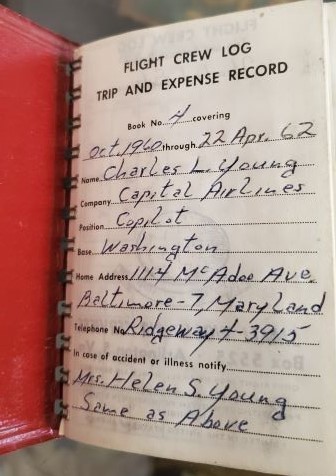 FLIGHT CREW LOG
TRIP AND EXPENSE RECORD
Book No. 4 covering
Oct. 1960 through 22 Apr. 62
Name Charles L. Young
Company Capital Airlines
Position Copilot
Base Washington
Home Address 1114 McAdoo Ave.
Baltimore-7, Maryland
Telephone No Ridgeway 4-3915
In case of accident or illness notify
Mrs. Helen S. Young
Same as Above